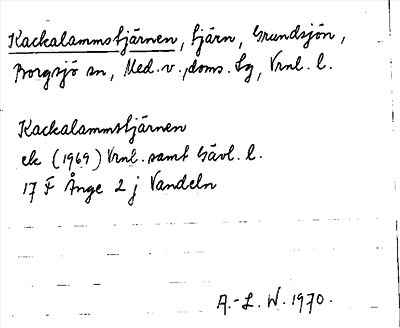 Kackalammstjärnen, tjärn, Grundsjön,
Borgsjö sn, Med. v., doms. tg, Vrnl. l.
Kackalammstjärnen
ek (1969) Vrnl. samt Gävl. l.
17 F Ånge 2 j Vandeln
A.-L. W. 1970.